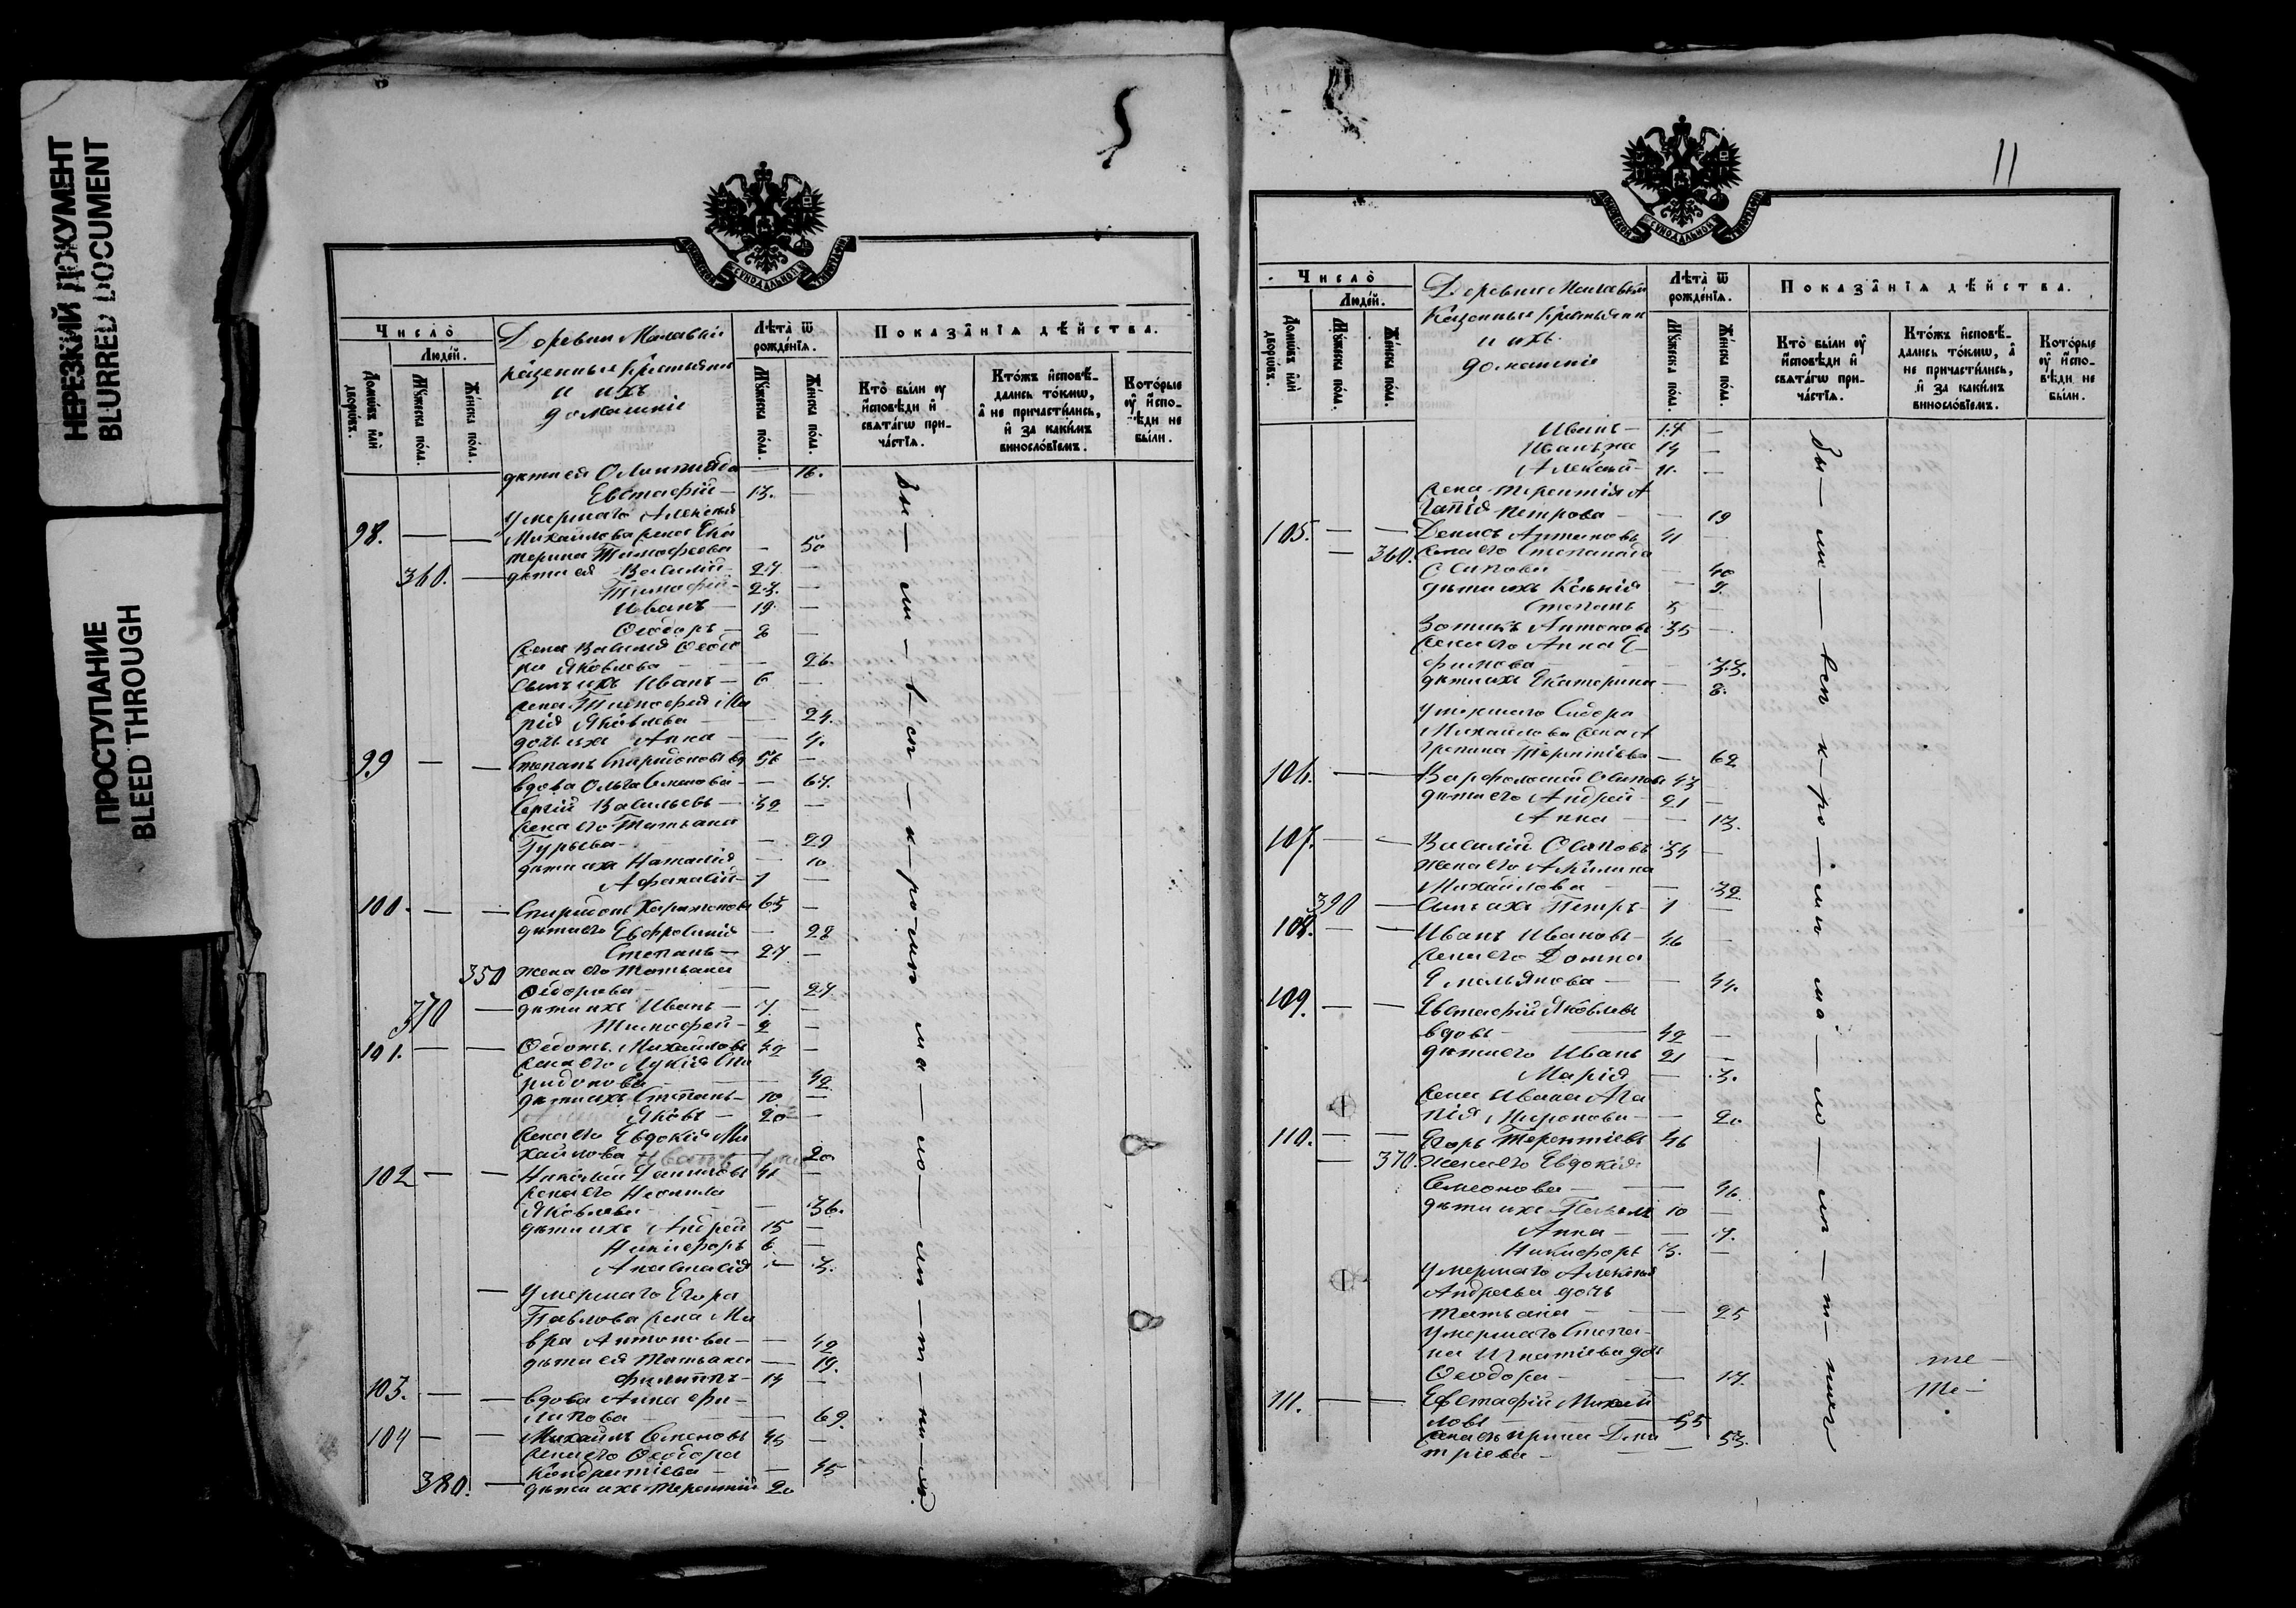 НЕРЕЗКИЙ ДОКУМЕНТ
BLURRED DOCUMENT
ПРОСТУПАНИЕ
BLEED THROUGH
Число̀
Людей.
Домѡвъ или дворовъ.
Мꙋжеска пола.
Женска пола.
Деревни
казенные крестьяне
и ихъ
домашніе
Лѣта ѿ рожденїѧ.
Мꙋжеска пола.
Женска пола.
Показанїѧ дѣйства.
Кто были оу исповѣди и свѧтагѡ причастїѧ.
Ктожъ исповѣдались токмѡ, а не причастились, и за какимъ винословїемъ.
Которые оу исповѣди не были.
дѣти ея Олимпіада — 16.
Евстафій — 13. —
умершаго Алексѣя
98. — — Михайлова жена Ека
терина Тимофеева — 50
360. — дѣти ея Василий — 27 —
Тимофей — 23. —
Иванъ — 19 —
Ѳеодоръ — 8 —
жена Василія Ѳеодо
ра Яковлева — 26.
сынъ ихъ Иванъ — 6 —
жена Тимофея Ма
рія Яковлева — 24.
дочь ихъ Анна — 4.
99 — — Степанъ Спиридоновъ вд 56 —
вдова Ольга Семенова — 67.
Сергій Васильевъ — 32 —
жена его Татьяна
Гурьева — 29
дѣти ихъ Наталія — 10
Афанасій — 1 —
100. — — Спиридонъ Харитоновъ 63 —
дѣти его Евфросинія — 28
Степанъ — 27 —
350 жена его Татьяна
Ѳедорова — 27.
370 — дѣти ихъ Иванъ — 7. —
Тимофей — 2 —
101. — — Ѳедотъ Михайловъ 42 —
жена его Лукія Спи
ридонова — 42
дѣти ихъ Степанъ — 10 —
Яковъ — 20 —
жена его Евдокія Ми
хайлова — 20
102 — — Николай Даниловъ 41 —
жена его Неонила
Яковлева — 36.
дѣти ихъ Андрей 15 —
Никифоръ 6. —
Анастасія — 3.
— умершаго Егора
Павлова жена Ма
вра Антонова — 49
дѣти ея Татьяна — 19.
Филиппъ — 14 —
103. — — вдова Анна Фи
липова — 69.
104 — — Михаилъ Семеновъ 45 —
жена его Ѳеодора
Кондратіева — 45
380. — дѣти ихъ Терентій 20
11
Число̀
Людей.
Домѡвъ или дворовъ.
Мꙋжеска пола.
Женска пола.
Деревни
Казенные крестьяне
и ихъ
домашніе
Лѣта ѿ рожденїѧ.
Мꙋжеска пола.
Женска пола.
Показанїѧ дѣйства.
Кто были оу исповѣди и свѧтагѡ причастїѧ.
Ктожъ исповѣдались токмѡ, а не причастились, и за какимъ винословїемъ.
Которые оу исповѣди не были.
Иванъ — 17 —
14 —
Алексѣй — 11. —
жена Терентія А
гапія Петрова — 19
105. — — Денисъ Антоновъ 41 —
— 360. жена его Степанида
Осипова — 40
дѣти ихъ Ксенія — 9.
Степанъ 5 —
Зотикъ Антоновъ 35 —
жена его Анна Е
фимова — 33.
дѣти ихъ Екатерина — 8.
умершаго Сидора
Михайлова жена А
грепина Терентіева — 62
106. — — Варфоломей Осиповъ 43
дѣти его Андрей — 21 —
Анна — 13.
107. — — Василій Осиповъ 34 —
жена его Акилина
Михайлова — 32
390 — сынъ ихъ Петръ — 1 —
108. — — Иванъ Ивановъ — 46 —
жена его Домна
Емельянова — 44.
109. — — Евстафій Яковлевъ
вдовъ — 42 —
дѣти его Иванъ 21 —
Марія — 3.
жена Ивана Ага
пія Миронова — 20
110. — — Егоръ Терентіевъ 46
— 370. жена его Евдокія
Семенова — 46
дѣти ихъ Павелъ 10 —
Анна — 7.
Никифоръ 3. —
умершаго Алексѣя
Андреева дочь
Татьяна — 25
умершаго Степа
на Игнатіева дочь
Ѳеодора — 17.
111. — — Евстафій Михай
ловъ — 55
жена его Ирина Дми
тріева — 53.